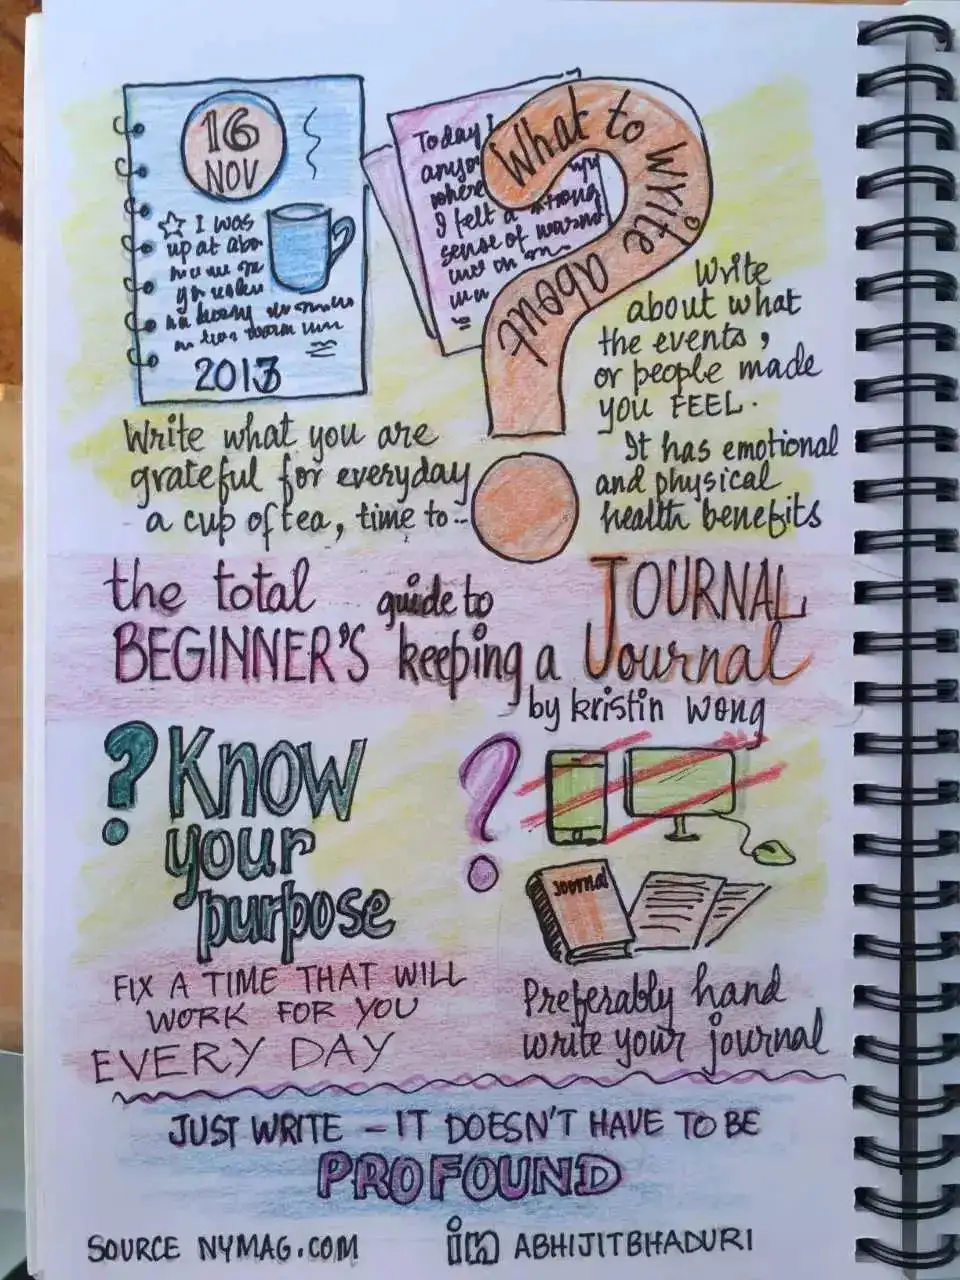 16
NOV
I was
up at
2013
Today
where
I felt a strong
sense of
What to write about
Write
about what
the events,
or people made
you FEEL.
It has emotional
and physical
health benefits
Write what you are
grateful for everyday
a cup of tea, time to..
the total guide to JOURNAL
BEGINNER'S keeping a Journal
by kristin wong
? Know
your
purpose
FIX A TIME THAT WILL
WORK FOR YOU
EVERY DAY
?
Journal
Preferably hand
write your journal
JUST WRITE – IT DOESN'T HAVE TO BE
PROFOUND
SOURCE NYMAG.COM
in ABHIJITBHADURI